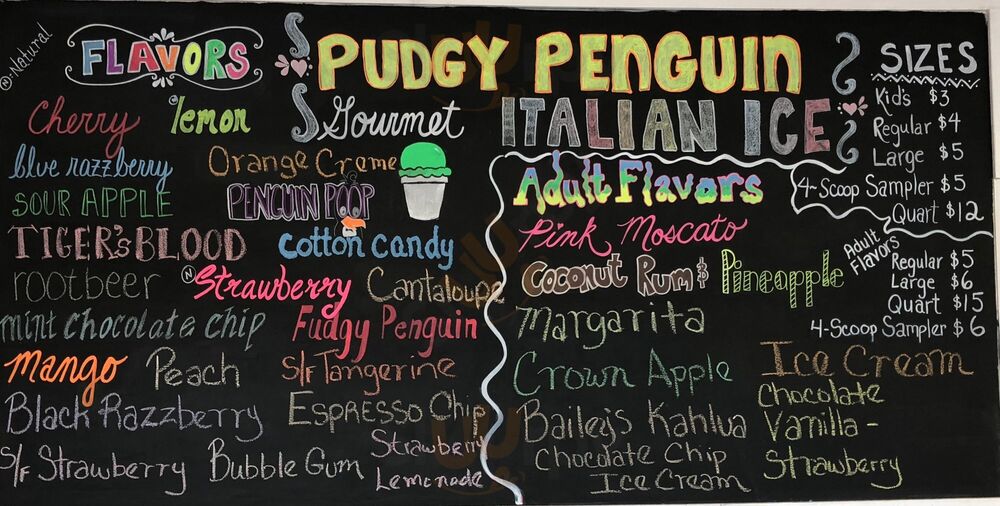 Ⓝ=Natural
FLAVORS
PUDGY PENGUIN
Gourmet ITALIAN ICE
Cherry Ⓝlemon
blue razzberry Orange Creme
SOUR APPLE PENGUIN POOP
TIGER'S BLOOD cotton candy
rootbeer ⓃStrawberry Cantaloupe
mint chocolate chip Fudgy Penguin
Mango Peach S/F Tangerine
Black Razzberry Espresso Chip
S/F Strawberry Bubble Gum Strawberry
Lemonade
Adult Flavors
Pink Moscato
Coconut Rum & Pineapple
Margarita
Crown Apple
Bailey's Kahlua
Chocolate Chip
Ice Cream
SIZES
Kid's $3
Regular $4
Large $5
4-Scoop Sampler $5
Quart $12
Adult Flavors
Regular $5
Large $6
Quart $15
4-Scoop Sampler $6
Ice Cream
Chocolate
Vanilla-
Strawberry